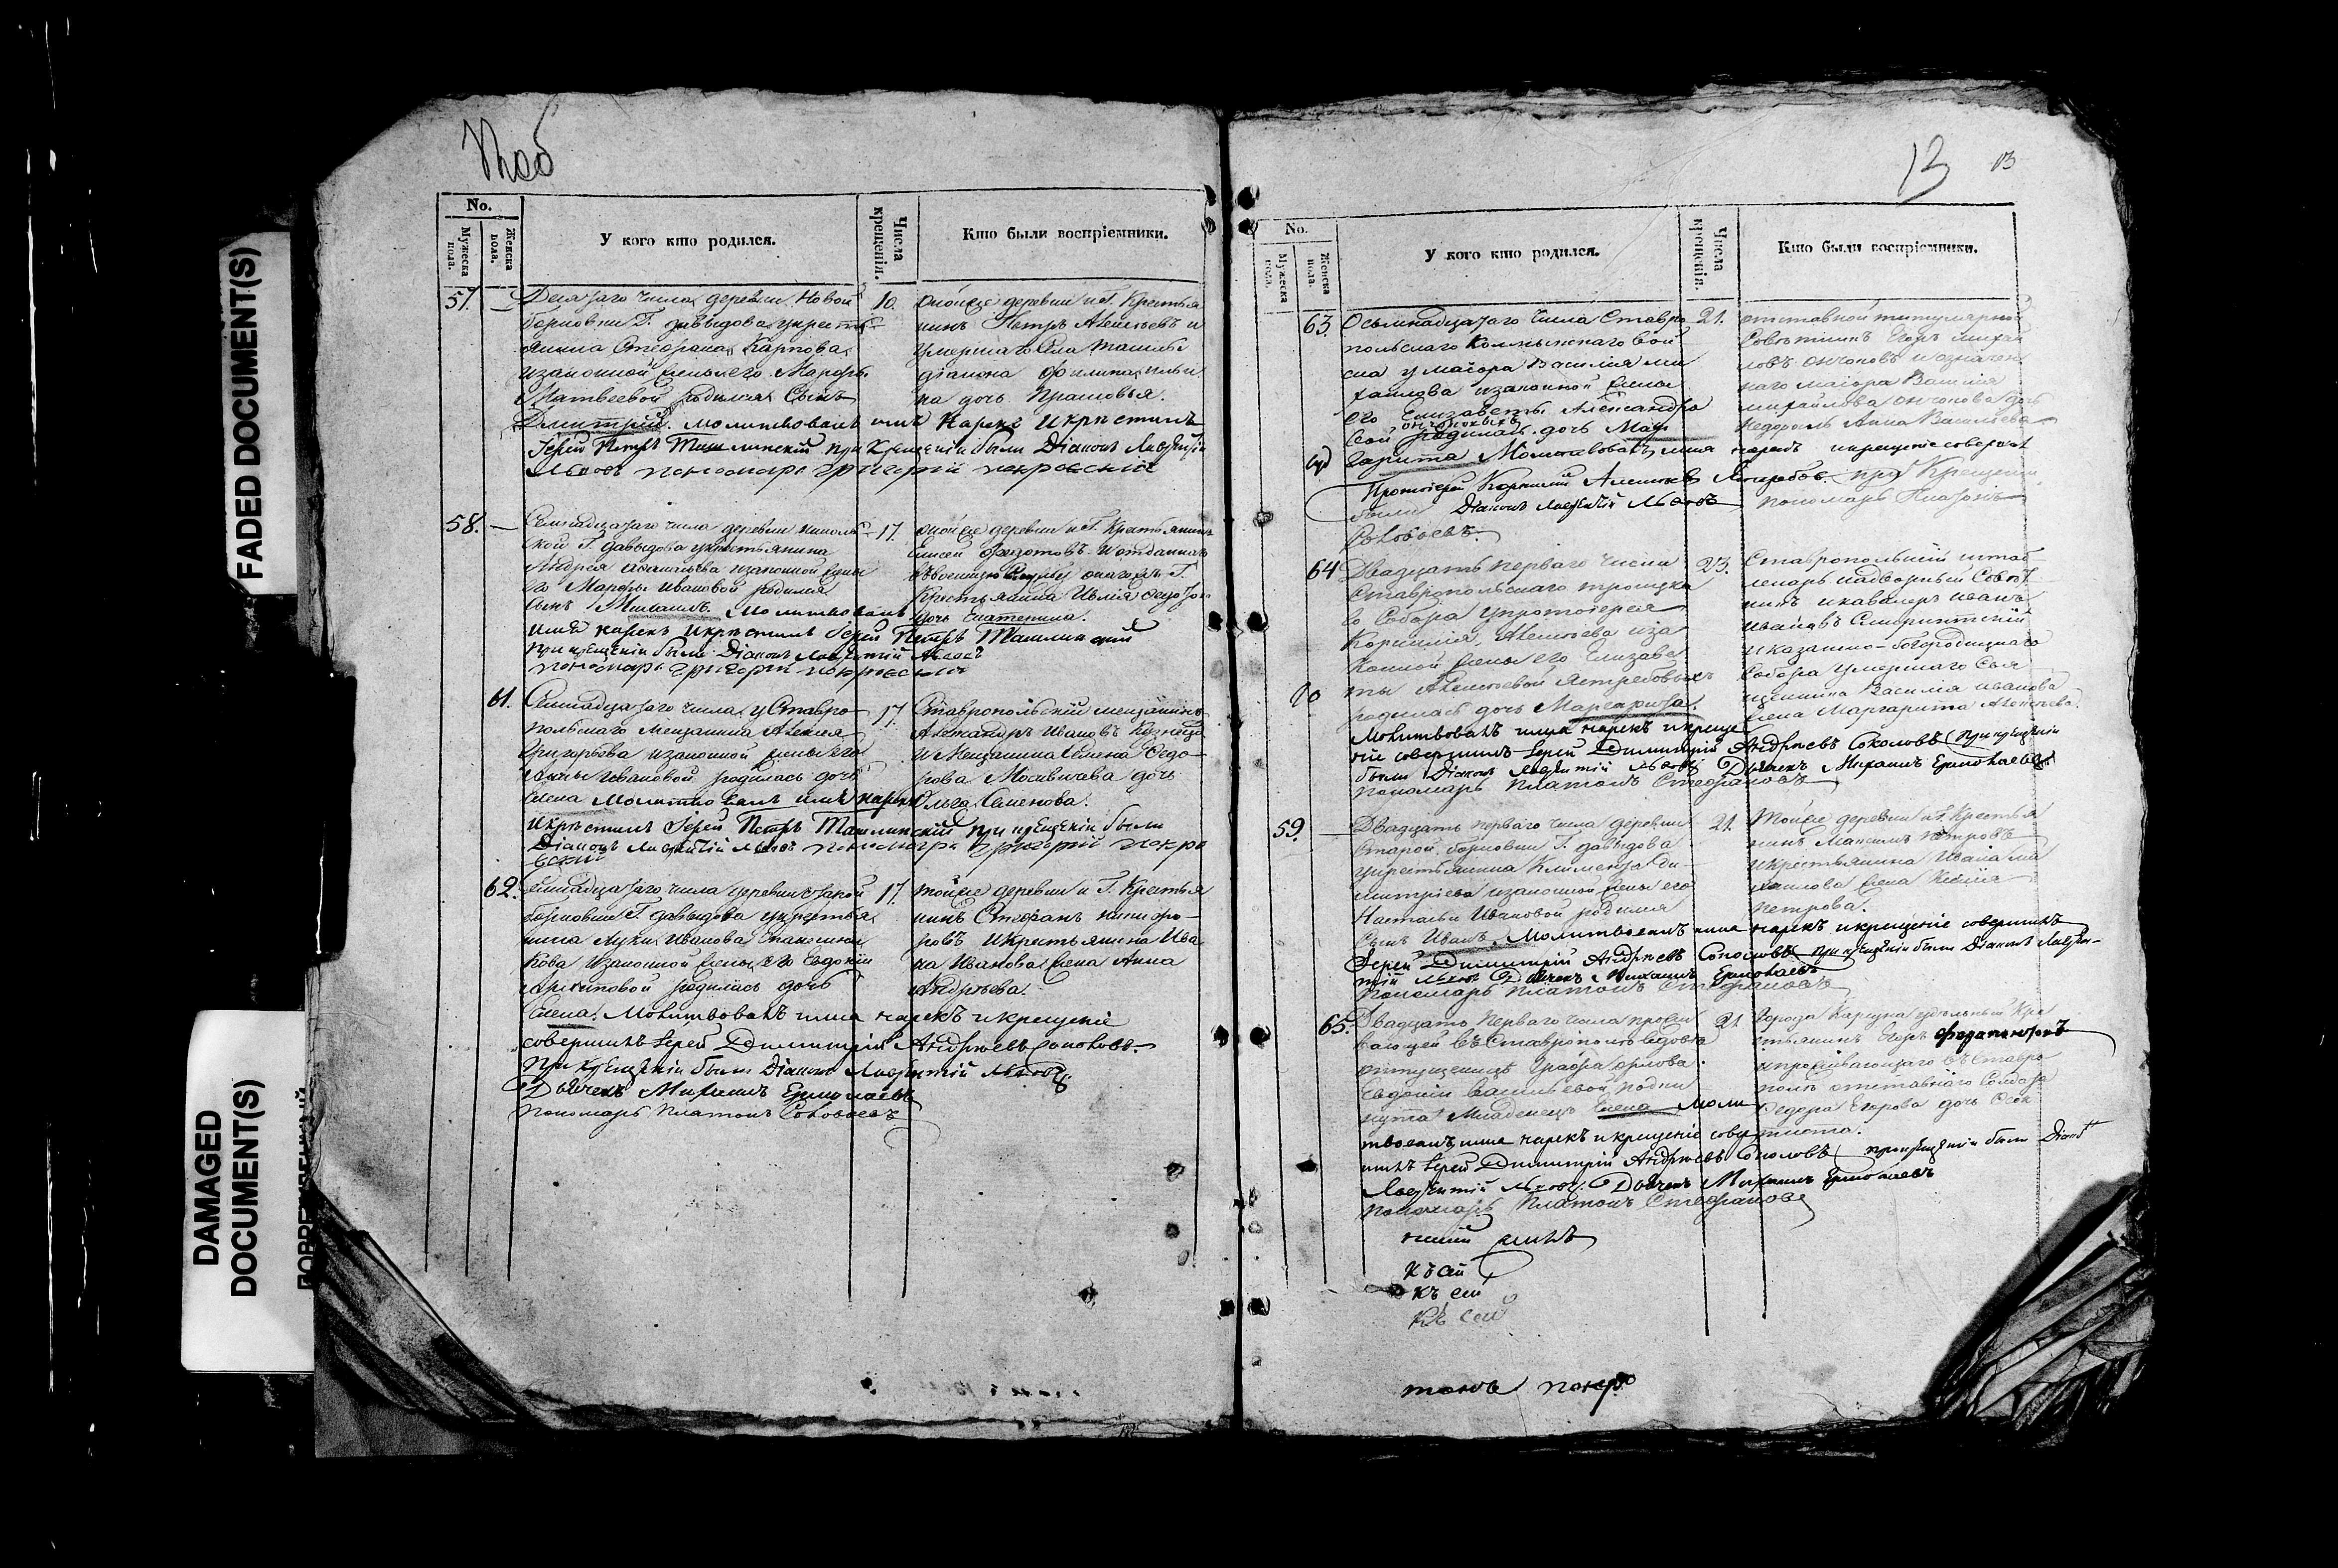 FADED DOCUMENT(S)
DAMAGED
DOCUMENT(S)
No.
Мужеска пола.
Женска пола.
У кого кто родился.
Числа крещенія.
Кто были воспріемники.
57. —
Десятаго числа деревни Новой
Борковки Г. Давыдова у крестья
янина Стефана Карпова
и законной жены его Марфы
Матвеевой родился сынъ
Димитрій. молитвовалъ имя нарекъ и крестилъ
Іерей Петръ Ташлинскій при крещеніи были Діаконъ Лаврентій
Львовъ пономарь григорій покровскій
10.
онойже деревни и Г. Крестья
нинъ Петръ Алексѣевъ и
умершаго села Ташлы
діакона Филипа
на дочь Прасковья.
58. —
Семнадцатаго числа деревни Николь
ской Г. Давыдова у крестьянина
Андрея Афанасьева и законной жены
его Марфы Ивановой родился
сынъ Михаилъ молитвовалъ
имя нарекъ и крестилъ Іерей Петръ Ташлинскій
при крещеніи были Діаконъ Лаврентій Львовъ
пономарь григорій покровскій
17.
онойже деревни и Г. Крестьянинъ
Елисей Федотовъ и отданнаго
въ военную службу онагожъ Г.
Крестьянина
дочь Екатерина.
61.
Семнадцатаго числа у Ставро
польскаго мещанина Алексея
Григорьева и законной жены его
Анны Ивановой родилась дочь
Елена молитвовалъ имя нарекъ
и крестилъ Іерей Петръ Ташлинскій при крещеніи были
Діаконъ Лаврентій Львовъ пономарь григорій покро
вскій
17.
Ставропольскій мещанинъ
Александръ Ивановъ Кузнецовъ
и мещанина Семена Федо
рова Москвичева дочь
Ольга Семенова.
62.
Семнадцатаго числа деревни
борковки Г. Давыдова у крестья
нина Луки Иванова
и законной жены его Евдокіи
родилась дочь
Елена. Молитвовалъ имя нарекъ и крещеніе
совершилъ Іерей Димитрій Андреевъ Соколовъ.
при крещеніи были Діаконъ Лаврентій Львовъ
Дьячекъ Михаилъ Ермолаевъ
пономарь Платонъ Соловьевъ
17.
тойже деревни и Г. Крестья
нинъ Стефанъ Никифо
ровъ и крестьянина Ива
на Иванова жена Анна
Андреева.
13
13
No.
Мужеска пола.
Женска пола.
У кого кто родился.
Числа крещенія.
Кто были воспріемники.
63.
Осьмнадцатаго числа Ставро
польскаго Калмыцкаго вой
ска у маіора Василія Ми
хайлова и законной жены
его Елизаветы Александро
вой родилась дочь Мар
гарита Молитвовалъ имя нарекъ и крещеніе совершилъ
Протоіерей Корнилій Алексеевъ Ястребовъ при крещеніи
были Діаконъ Лаврентій Львовъ пономарь Платонъ
Соловьевъ.
21.
отставной титулярной
Советникъ Егоръ Михай
ловъ и означен
наго маіора Василія
Михайлова дочь
Анна Васильева
64
Двадцать перваго числа
Ставропольскаго Троицка
го Собора у протоіерея
Корнилія Алексѣева и за
конной жены его Елизаве
ты Алексѣевой Ястребовыхъ
родилась дочь Маргарита.
Молитвовалъ имя нарекъ и креще
ніе совершилъ Іерей Димитрій Андреевъ Соколовъ при крещеніи
были Діаконъ Лаврентій Львовъ Дьячекъ Михаилъ Ермолаевъ
пономарь Платонъ Стефановъ
23.
Ставропольскій штаб
лекарь надворный Совѣт
никъ и кавалеръ Иванъ
Ивановъ
и Казанско-Богородицкаго
Собора умершаго Свя
щенника Василія Иванова
жена Маргарита Алексѣева.
59. —
Двадцать перваго числа деревни
Старой борковки Г. Давыдова
у крестьянина Климента Ди
митріева и законной жены его
Настасьи Ивановой родился
сынъ Иванъ. Молитвовалъ имя нарекъ и крещеніе совершилъ
Іерей Димитрій Андреевъ Соколовъ при крещеніи были Діаконъ Лаврен-
тій Львовъ Дьячекъ Михаилъ Ермолаевъ
пономарь Платонъ Стефановъ
21.
Тойже деревни и Г. Крестья
нинъ Максимъ Петровъ
и крестьянина Ивана
жена
Петрова.
65.
Двадцать перваго числа прожи
вающей въ Ставрополѣ вдовы
отпущенницы Графа Орлова
Евдокіи Васильевой подки
нутъ младенецъ Елена Моли
твовалъ имя нарекъ и крещеніе совер
шилъ Іерей Димитрій Андреевъ Соколовъ при крещеніи были Діаконъ
Лаврентій Львовъ Дьячекъ Михаилъ Ермолаевъ
пономарь Платонъ Стефановъ
21
города удѣльный Кре
стьянинъ Егоръ
и проживающаго въ Ставро
полѣ отставнаго Солдата
Федора Егорова дочь
къ сей
къ сей
къ сей